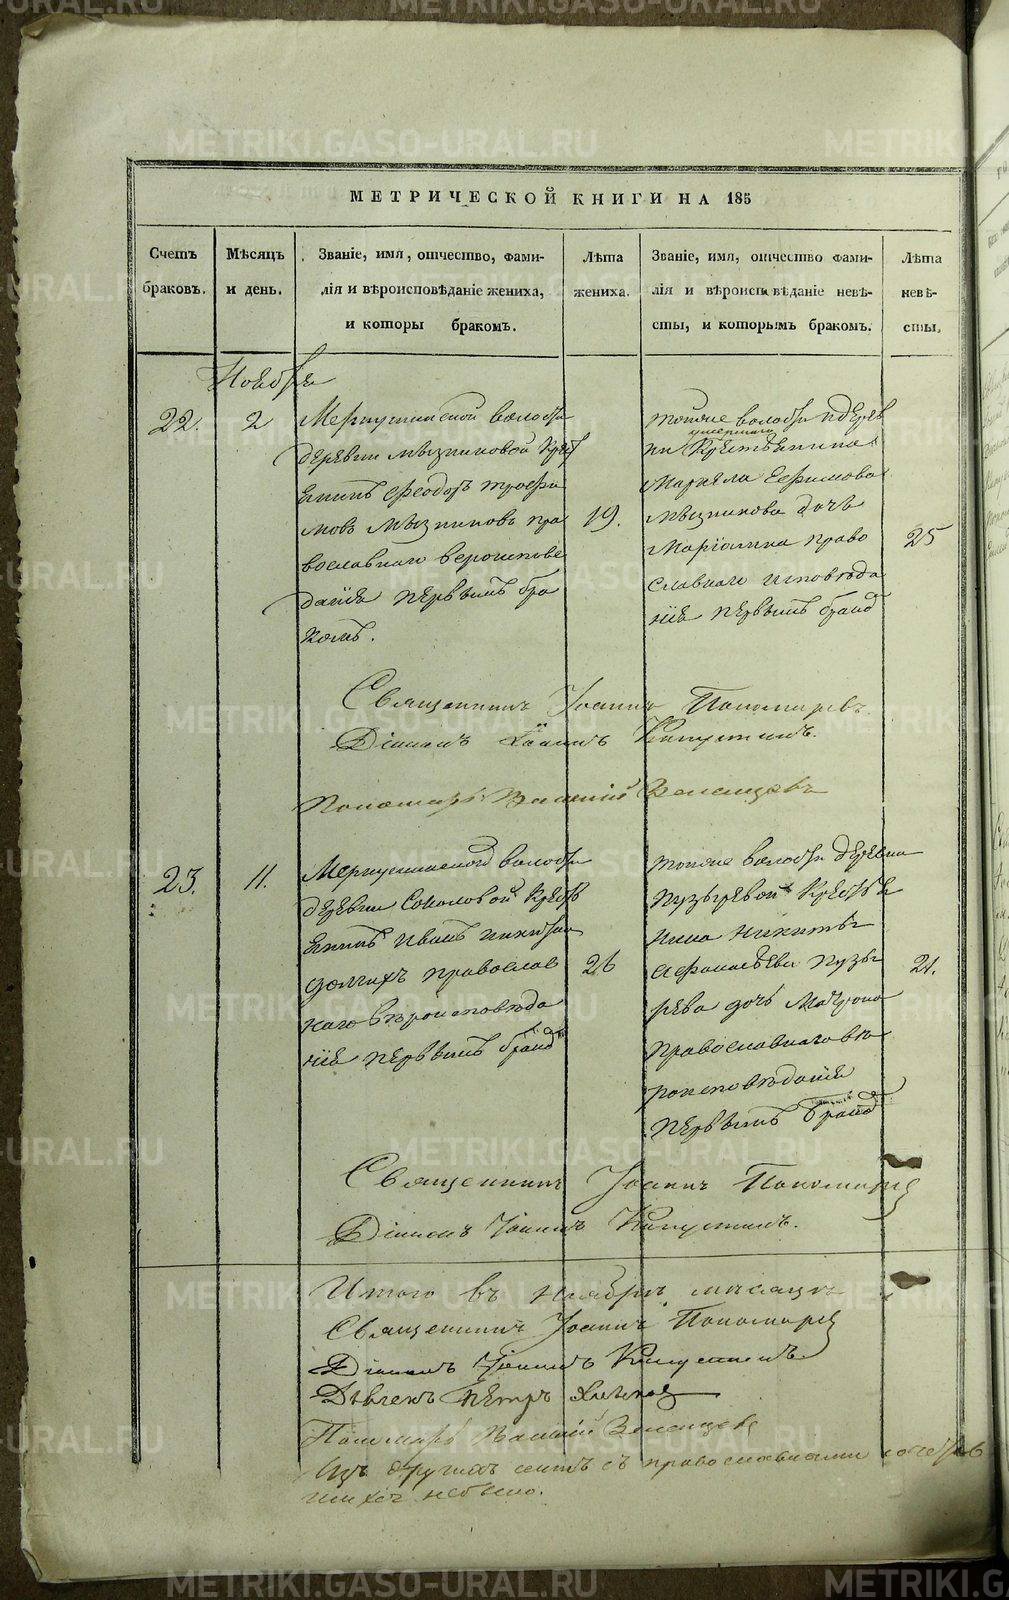 МЕТРИЧЕСКОЙ КНИГИ НА 185
Счетъ браковъ.
Мѣсяцъ и день.
Званіе, имя, отчество, фами-
лія и вѣроисповѣданіе жениха,
и которы бракомъ.
Лѣта жениха.
Званіе, имя, отчество фами-
лія и вѣроисповѣданіе невѣ-
сты, и которымъ бракомъ.
Лѣта невѣ-
сты.
Ноября
22.
2
Меркушинской волости
деревни Мызниковой крест
янинъ Феодоръ Трофи
мовъ Мызниковъ пра
вославнаго вероиспове
данія первымъ бра
комъ.
19.
тойже волости и дерев
ни умершаго крестьянина
Ефимова
Мызникова дочь
Маріамна право
славнаго исповѣда
нія первымъ бракомъ
25
Священникъ Іоаннъ Пономаревъ
Діаконъ Іоаннъ Капустинъ.
Пономарь Василій
23.
11.
Меркушинской волости
деревни Соколовой крест
янинъ Иванъ Никитинъ
Долгихъ православ
наго вѣроисповѣда
нія первымъ бракомъ
26
тойже волости деревни
Пузыревой крестья
нина Никиты
Афанасьева Пузы
рева дочь Матрона
православнаго вѣ
роисповѣданія
первымъ бракомъ
21.
Священникъ Іоаннъ Пономаревъ
Діаконъ Іоаннъ Капустинъ.
Итого въ Ноябрѣ мѣсяцѣ
Священникъ Іоаннъ Пономаревъ
Діаконъ Іоаннъ Капустинъ
Дьячекъ Петръ
Пономарь Василій
съ православными
небыло.
METRIKI.GASO-URAL.RU